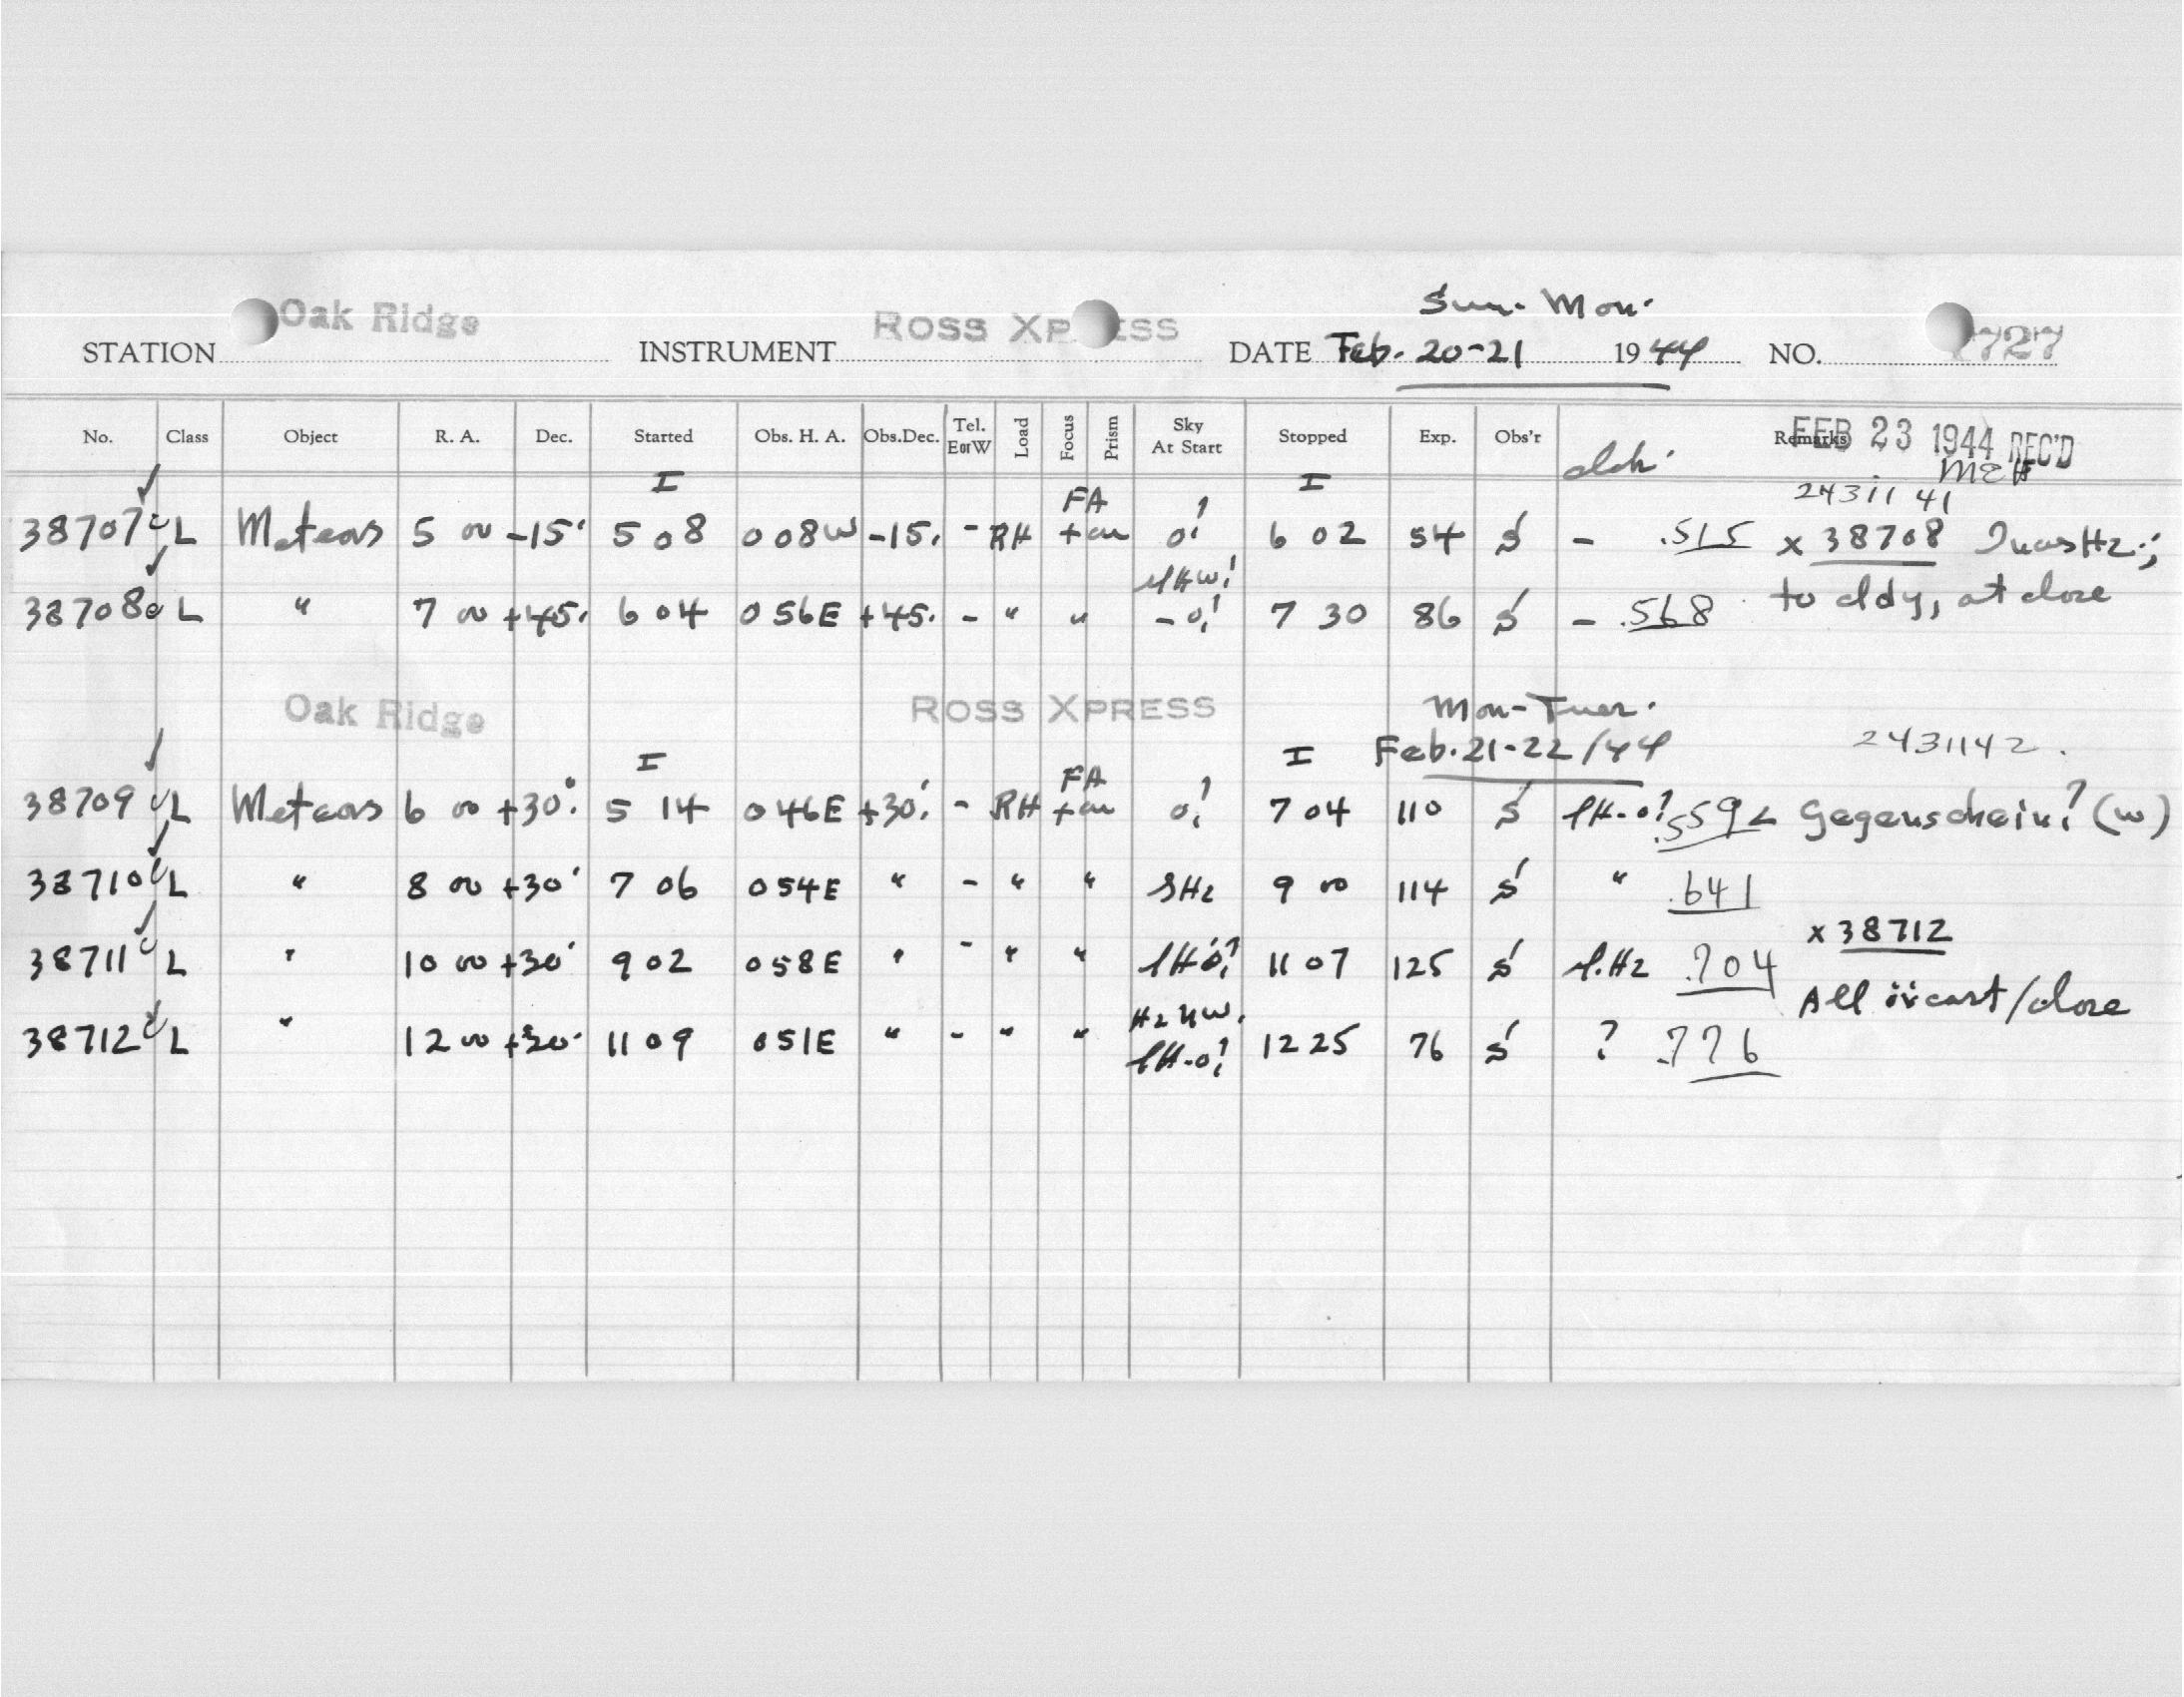 Sun- Mon.
STATION Oak Ridge INSTRUMENT ROSS XPRESS DATE Feb. 20-21 1944 NO. 727
No. Class Object R. A. Dec. Started Obs. H. A. Obs.Dec. Tel. E or W Load Focus Prism Sky At Start Stopped Exp. Obs'r Remarks
FEB 23 1944 REC'D
MEH
I FA I 2431141
38707 c L Meteors 5 00 -15. 5 08 0 08W -15. - RH 6 02 54 S - .515 x 38708
to cldy, at close
38708 c L " 7 00 +45. 6 04 0 56E +45. - " " 7 30 86 S - .568
Oak Ridge ROSS XPRESS Mon-Tues.
I FA I Feb. 21-22/44 2431142.
38709 c L Meteors 6 00 +30. 5 14 0 46E +30. - RH 7 04 110 S .559 Gegenschein? (w)
38710 c L " 8 00 +30 7 06 0 54E " - " " SHz 9 00 114 S " .641
x 38712
38711 c L " 10 00 +30 9 02 0 58E " - " " 11 07 125 S .704
All close
38712 c L " 12 00 +30. 11 09 0 51E " - " " 12 25 76 S ? .776